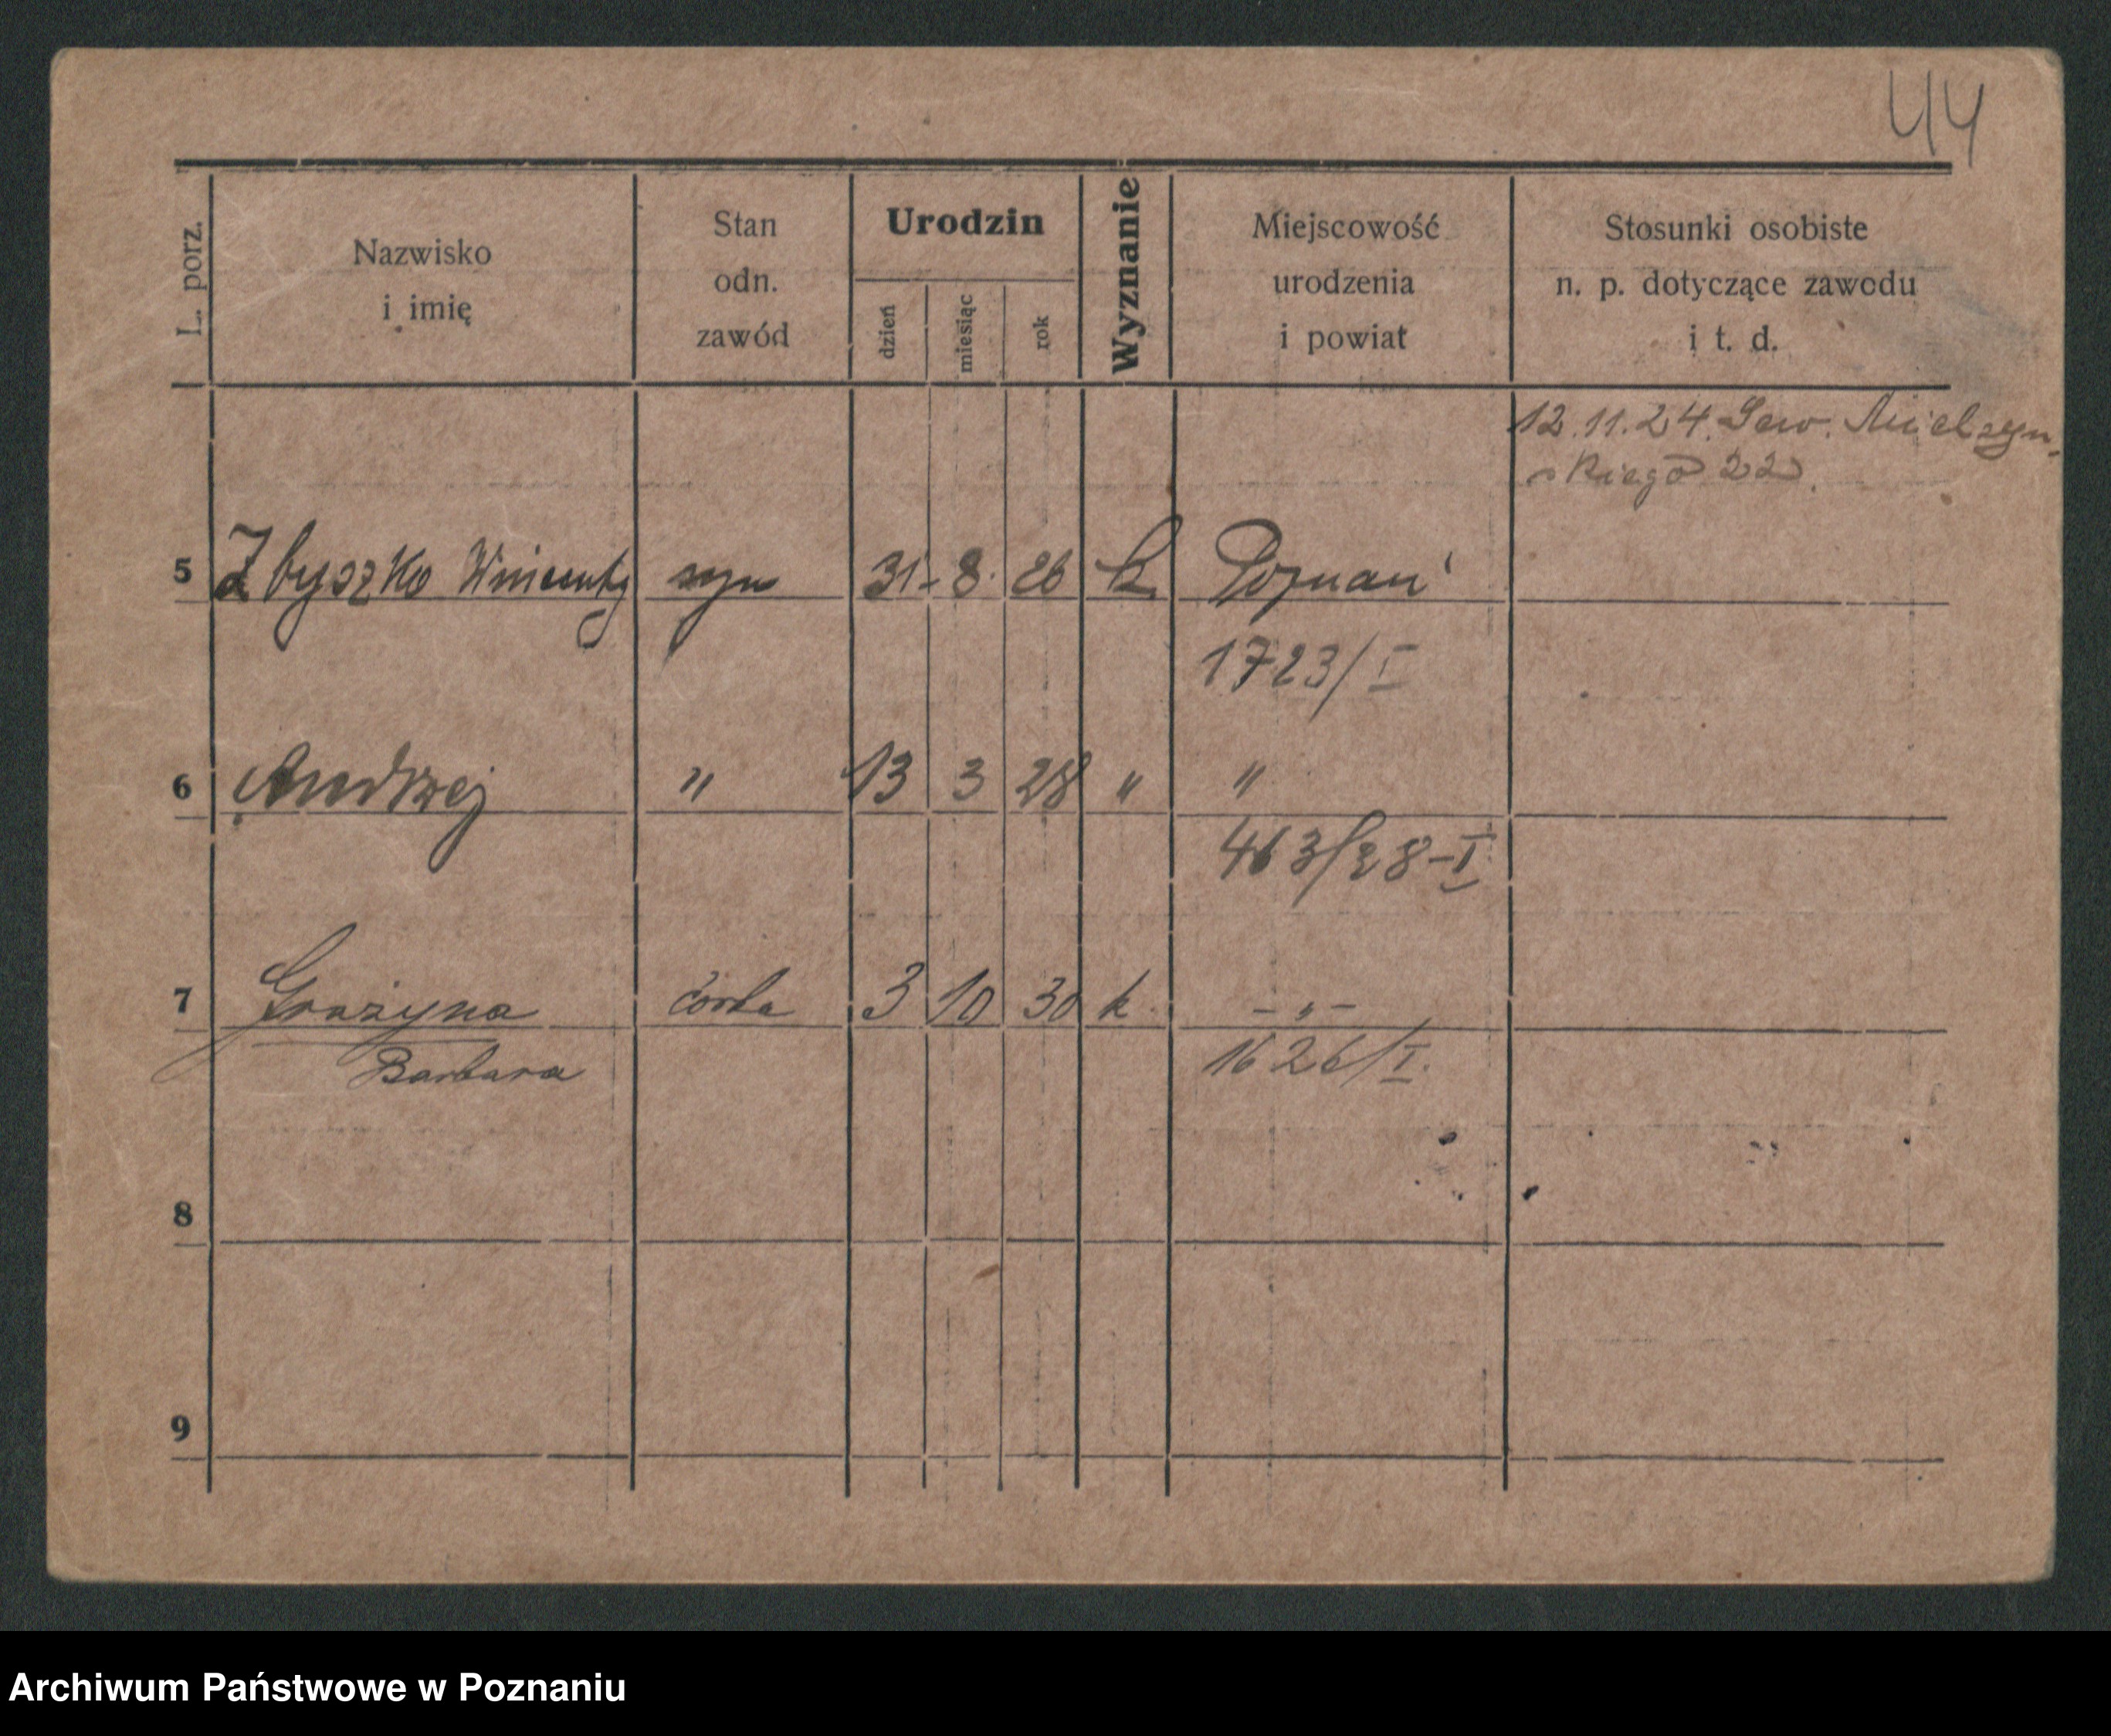 44
L. porz.
Nazwisko
i imię
Stan
odn.
zawód
Urodzin
dzień
miesiąc
rok
Wyznanie
Miejscowość
urodzenia
i powiat
Stosunki osobiste
n. p. dotyczące zawodu
i t. d.
12.11.24. Sew. Mielzyn-
skiego 22.
5 Zbyszko Wincenty syn 31 - 8. 26 k. Poznań
1723/I
6 Andrzej " 13 3 28 " "
463/28-I
7 Grażyna córka 3 10 30 k. -"-
Barbara 1626/I.
8
9
Archiwum Państwowe w Poznaniu